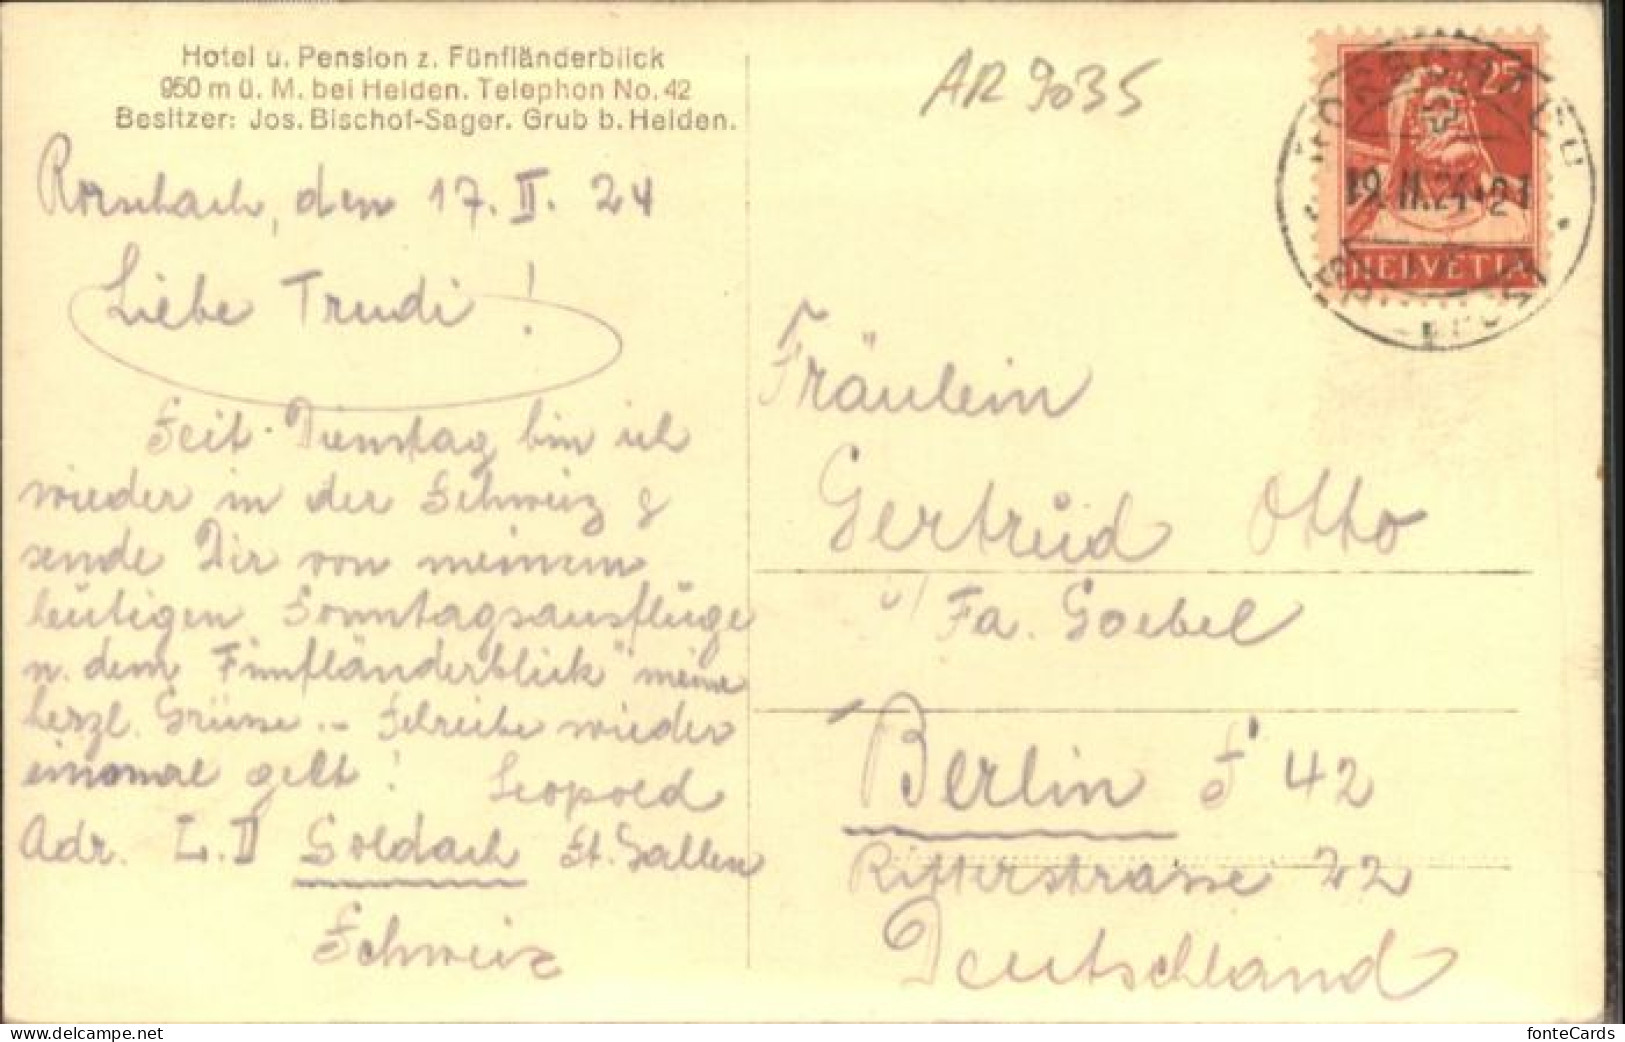 Hotel u. Pension z. Fünfländerblick
950 m ü. M. bei Heiden. Telephon No. 42
Besitzer: Jos. Bischof-Sager. Grub b. Heiden.
AR 9035
Rorschach, den 17. II. 24
Liebe Trudi !
Seit Dienstag bin ich
wieder in der Schweiz &
sende Dir von meinem
heutigen Sonntagsausfluge
n. dem Fünfländerblick" meine
herzl. Grüsse. – Schreibe wieder
einmal gelt ! Leopold
Adr. L. D Goldach St. Gallen
Schweiz
25
19. II. 24
HELVETIA
Fräulein
Gertrud Otto
Fa. Goebel
Berlin S 42
Ritterstrasse 22
Deutschland
www.delcampe.net
fonteCards